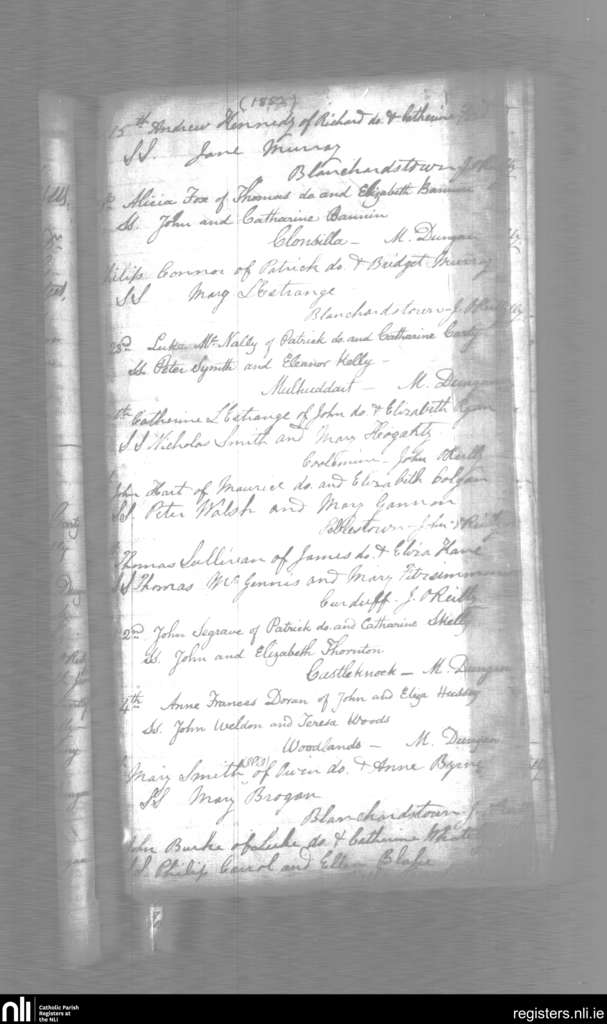 (1852)
15th Andrew Kennedy of Richard do. & Catherine
SS. Jane Murray
Blanchardstown J. O'Reilly
Alicia Fox of Thomas do and Elizabeth Bannin
Ss. John and Catharine Bannin
Clonsilla — M. Dungan
Connor of Patrick do. & Bridget Murray
SS Mary L'Estrange
Blanchardstown J. O'Reilly
23rd Luke Mc Nally of Patrick do. and Catharine Carty
Ss. Peter Smith and Eleanor Kelly —
Mulhuddart — M. Dungan
Catherine L'Estrange of John do. & Elizabeth Ryan
SS Nicholas Smith and Mary Hogahty
Coolemine — John O'Reilly
John Hart of Maurice do. and Elizabeth Colgan
SS. Peter Walsh and Mary Gannon
John O'Reilly
Thomas Sullivan of James do. & Eliza Kane
SS Thomas Mc Gennis and Mary Fitzsimmons
Curduff. J. O'Reilly
2nd John Segrave of Patrick do. and Catharine Skelly
Ss. John and Elizabeth Thornton
Castleknock — M. Dungan
4th Anne Frances Doran of John and Eliza Hussey
Ss. John Weldon and Teresa Woods
Woodlands — M. Dungan
Mary Smith of Owen do. & Anne Byrne
SS Mary Brogan
Blanchardstown
John Burke of Luke do. & Catherine
SS Philip Carrol and Ellen Blake
nli
Catholic Parish
Registers at
the NLI
registers.nli.ie